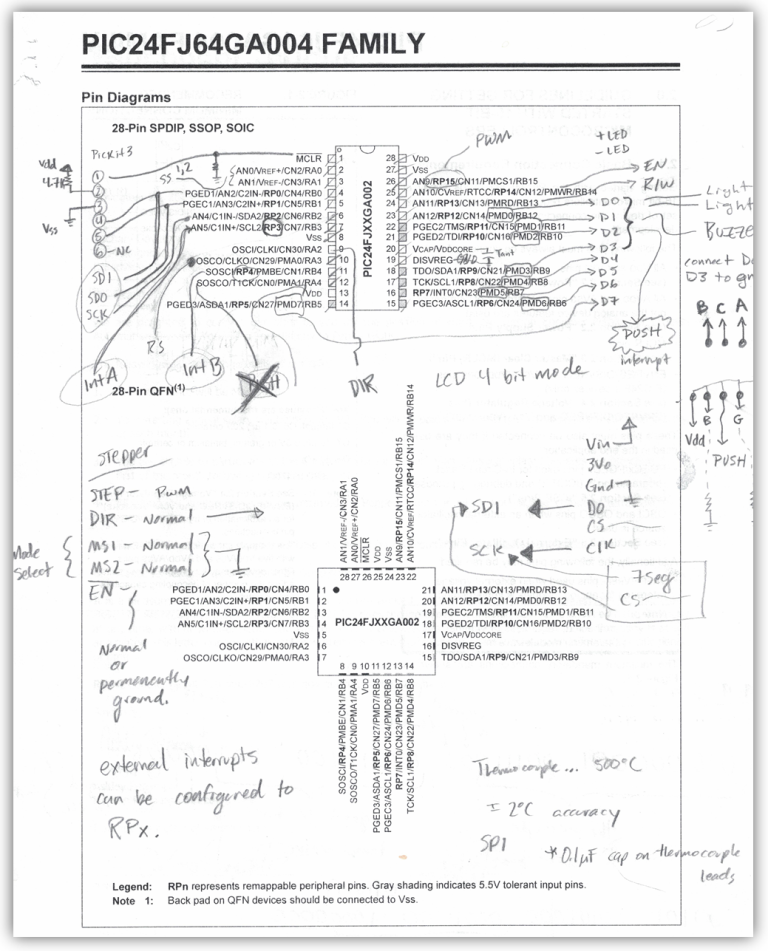 PIC24FJ64GA004 FAMILY
Pin Diagrams
28-Pin SPDIP, SSOP, SOIC
PicKit3
Vdd
4.7K
1
2
3
4
5
6 - NC
Vss
SS 1,2
SDI
SDO
SCK
Int A
RS
Int B
PUSH
DIR
MCLR 1
AN0/VREF+/CN2/RA0 2
AN1/VREF-/CN3/RA1 3
PGED1/AN2/C2IN-/RP0/CN4/RB0 4
PGEC1/AN3/C2IN+/RP1/CN5/RB1 5
AN4/C1IN-/SDA2/RP2/CN6/RB2 6
AN5/C1IN+/SCL2/RP3/CN7/RB3 7
VSS 8
OSCI/CLKI/CN30/RA2 9
OSCO/CLKO/CN29/PMA0/RA3 10
SOSCI/RP4/PMBE/CN1/RB4 11
SOSCO/T1CK/CN0/PMA1/RA4 12
VDD 13
PGED3/ASDA1/RP5/CN27/PMD7/RB5 14
PIC24FJXXGA002
28 VDD
27 VSS
26 AN9/RP15/CN11/PMCS1/RB15
25 AN10/CVREF/RTCC/RP14/CN12/PMWR/RB14
24 AN11/RP13/CN13/PMRD/RB13
23 AN12/RP12/CN14/PMD0/RB12
22 PGEC2/TMS/RP11/CN15/PMD1/RB11
21 PGED2/TDI/RP10/CN16/PMD2/RB10
20 VCAP/VDDCORE
19 DISVREG
18 TDO/SDA1/RP9/CN21/PMD3/RB9
17 TCK/SCL1/RP8/CN22/PMD4/RB8
16 RP7/INT0/CN23/PMD5/RB7
15 PGEC3/ASCL1/RP6/CN24/PMD6/RB6
PWM
+ LED
- LED
EN
R/W
D0
D1
D2
D3
D4
D5
D6
D7
Tant
Light
Light
BUZZE
connect D
D3 to gr
B C A
PUSH
interrupt
LCD 4 bit mode
B G
Vdd
PUSH
28-Pin QFN(1)
Stepper
STEP - PWM
DIR - Normal
MS1 - Normal
MS2 - Normal
Mode
Select
EN
Normal
or
permenently
ground.
Vin
3Vo
Gnd
SDI
DO
CS
SCK
CLK
7seg
CS
AN1/VREF-/CN3/RA1
AN0/VREF+/CN2/RA0
MCLR
VDD
VSS
AN9/RP15/CN11/PMCS1/RB15
AN10/CVREF/RTCC/RP14/CN12/PMWR/RB14
28 27 26 25 24 23 22
PGED1/AN2/C2IN-/RP0/CN4/RB0 1
PGEC1/AN3/C2IN+/RP1/CN5/RB1 2
AN4/C1IN-/SDA2/RP2/CN6/RB2 3
AN5/C1IN+/SCL2/RP3/CN7/RB3 4
VSS 5
OSCI/CLKI/CN30/RA2 6
OSCO/CLKO/CN29/PMA0/RA3 7
PIC24FJXXGA002
21 AN11/RP13/CN13/PMRD/RB13
20 AN12/RP12/CN14/PMD0/RB12
19 PGEC2/TMS/RP11/CN15/PMD1/RB11
18 PGED2/TDI/RP10/CN16/PMD2/RB10
17 VCAP/VDDCORE
16 DISVREG
15 TDO/SDA1/RP9/CN21/PMD3/RB9
8 9 10 11 12 13 14
SOSCI/RP4/PMBE/CN1/RB4
SOSCO/T1CK/CN0/PMA1/RA4
VDD
PGED3/ASDA1/RP5/CN27/PMD7/RB5
PGEC3/ASCL1/RP6/CN24/PMD6/RB6
RP7/INT0/CN23/PMD5/RB7
TCK/SCL1/RP8/CN22/PMD4/RB8
external interrupts
can be configured to
RPx.
Thermocouple... 500°C
± 2°C accuracy
SPI
* 0.1µF cap on thermocouple
leads
Legend: RPn represents remappable peripheral pins. Gray shading indicates 5.5V tolerant input pins.
Note 1: Back pad on QFN devices should be connected to Vss.